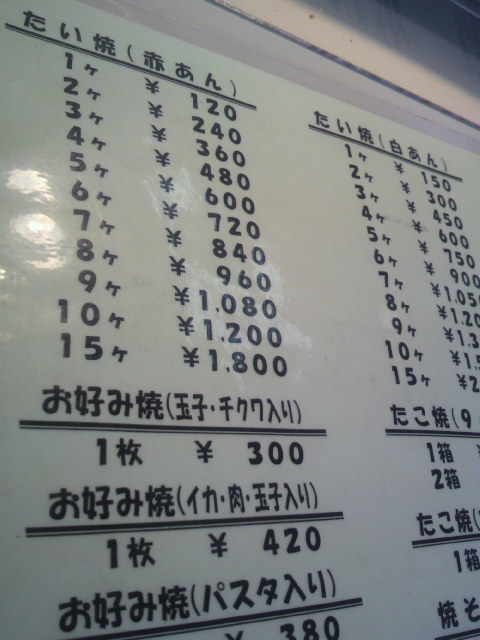 たい焼(赤あん)
1ヶ ¥ 120
2ヶ ¥ 240
3ヶ ¥ 360
4ヶ ¥ 480
5ヶ ¥ 600
6ヶ ¥ 720
7ヶ ¥ 840
8ヶ ¥ 960
9ヶ ¥1.080
10ヶ ¥1.200
15ヶ ¥1.800
お好み焼(玉子・チクワ入り)
1枚 ¥ 300
お好み焼(イカ・肉・玉子入り)
1枚 ¥ 420
お好み焼(パスタ入り)
¥ 380
たい焼(白あん)
1ヶ ¥ 150
2ヶ ¥ 300
3ヶ ¥ 450
4ヶ ¥ 600
5ヶ ¥ 750
6ヶ ¥ 900
7ヶ ¥1.05
8ヶ ¥1.20
9ヶ ¥1.3
10ヶ ¥1.
15ヶ ¥2
たこ焼(9
1箱
2箱
たこ焼(
1箱
焼そ